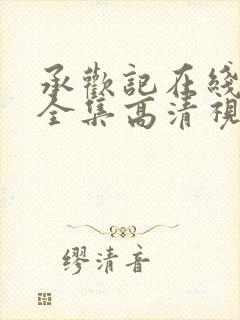 承歡記在綫
全集高清視
缪清音